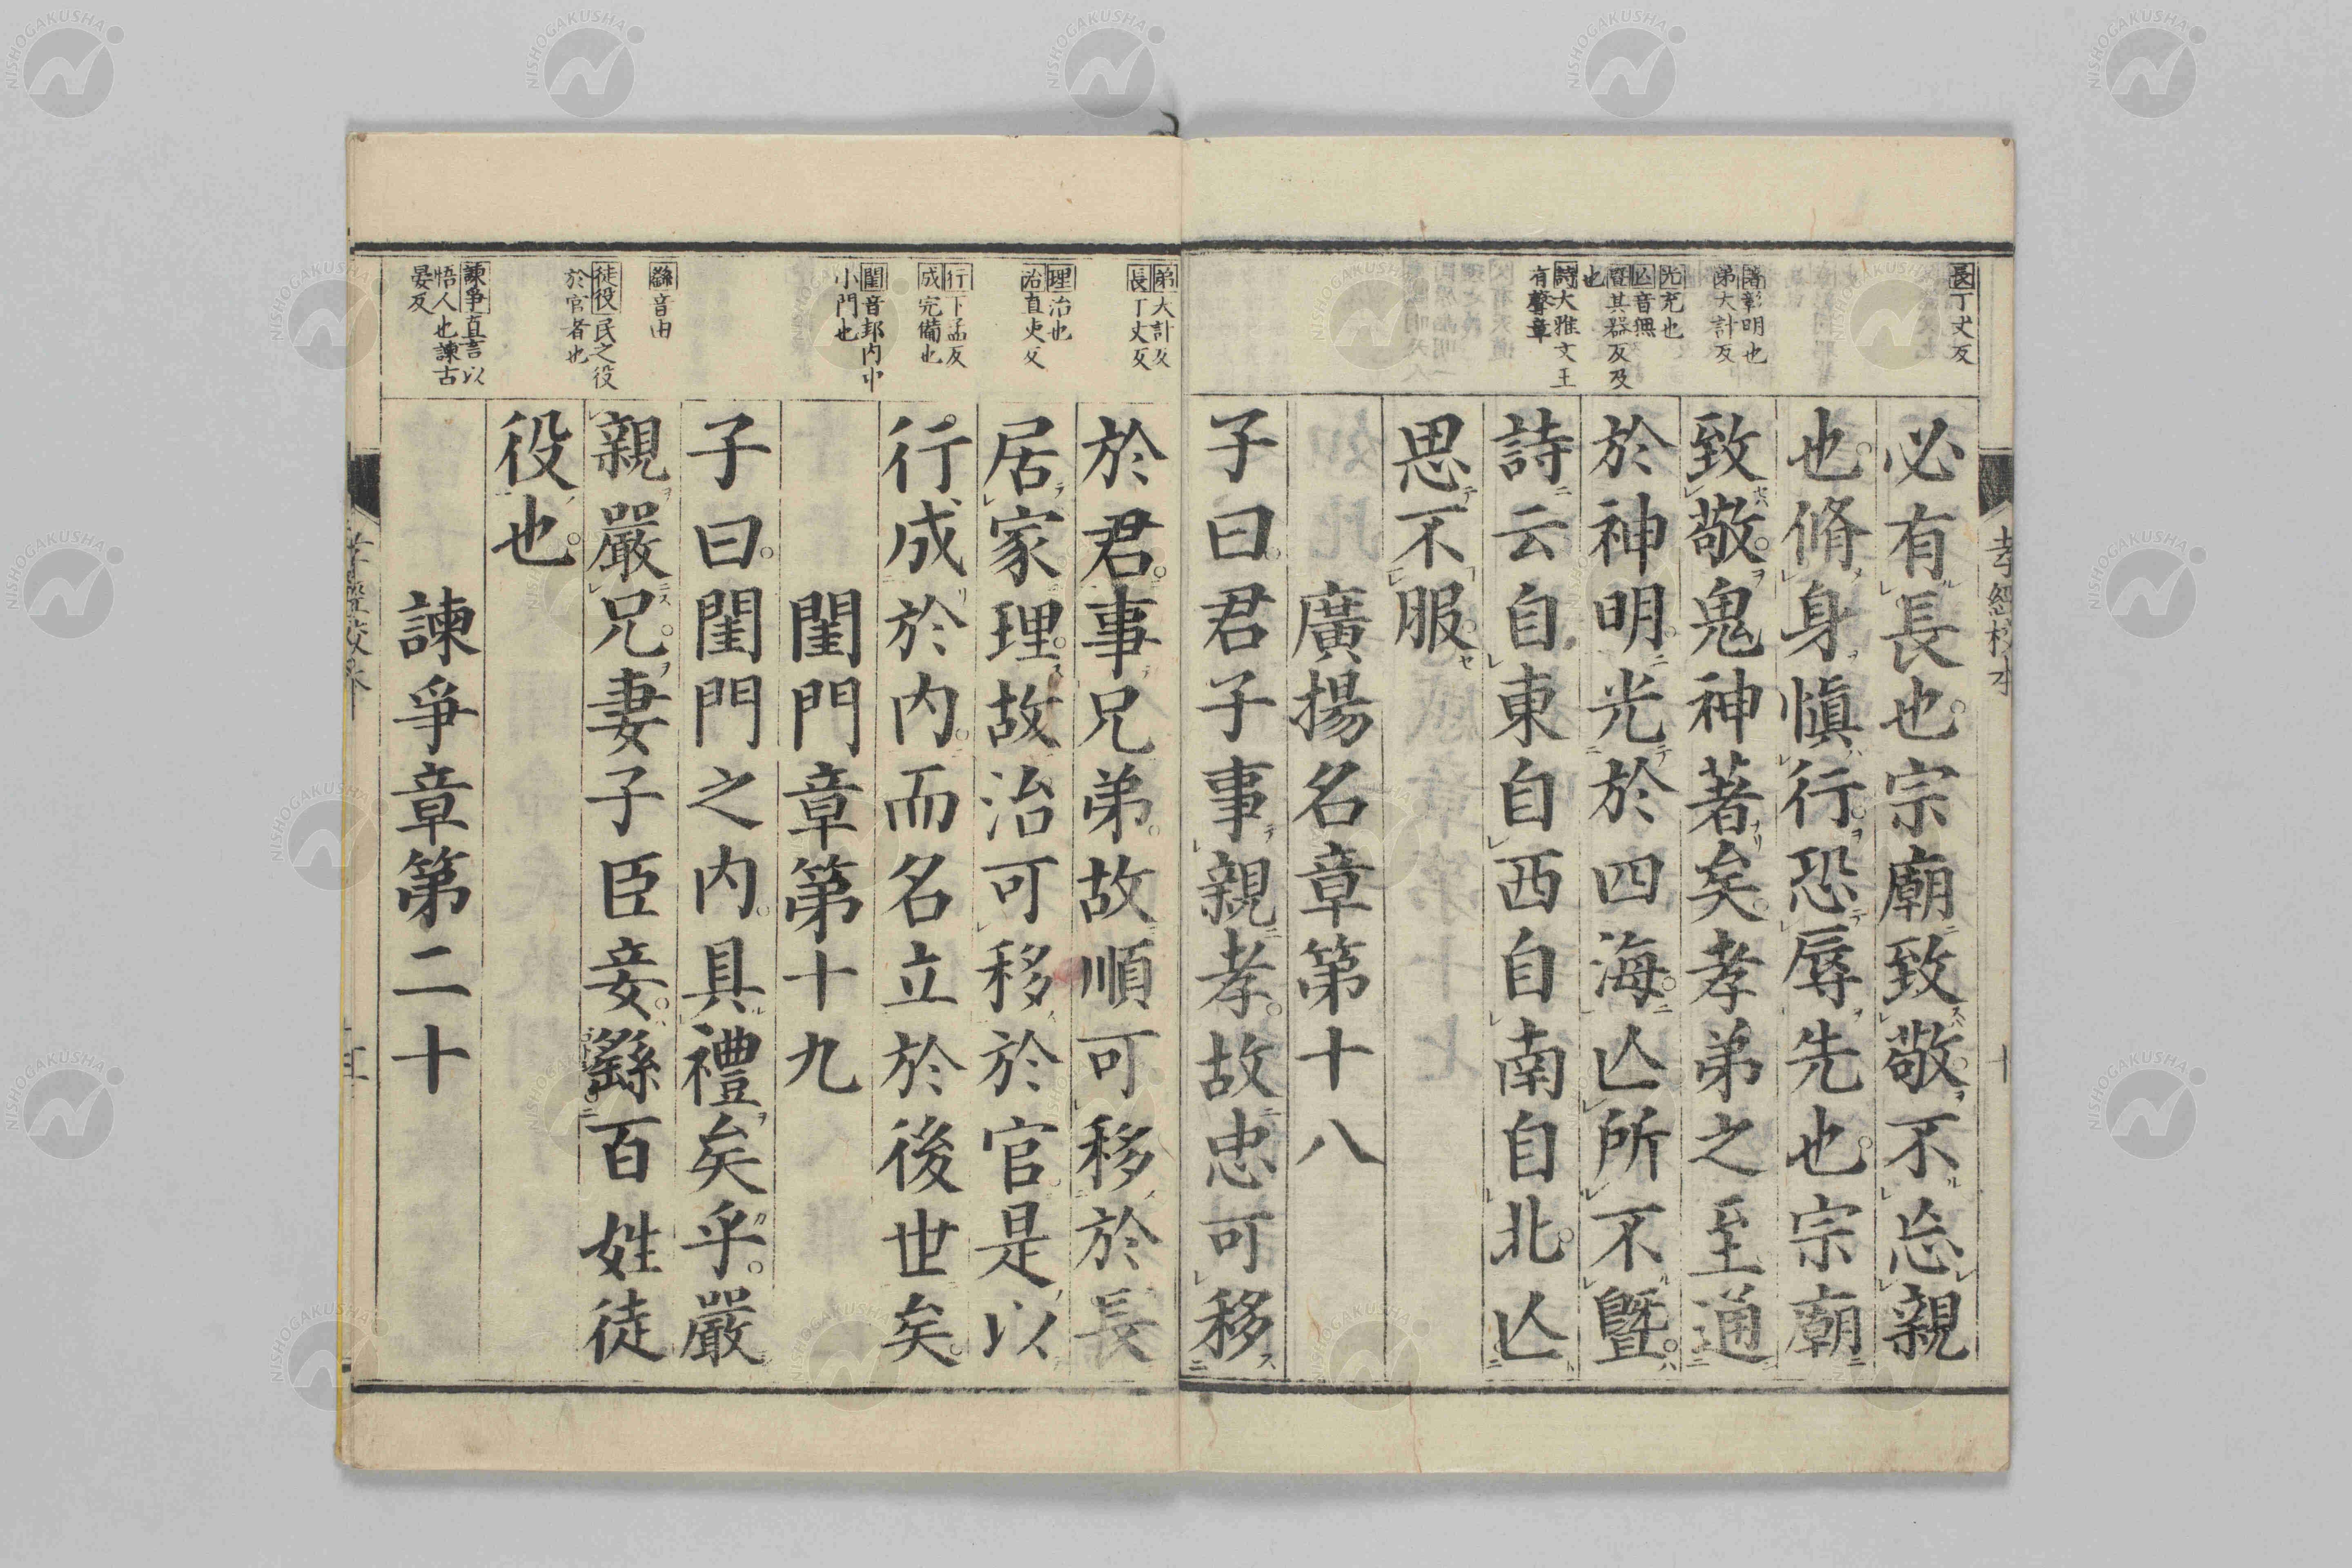 長丁丈反
著彰明也
弟大計反
光充也
亾音無
曁其器反及
也
詩大雅文王
有聲章
必有長也宗廟致敬不忘親
也脩身愼行恐辱先也宗廟
致敬鬼神著矣孝弟之至通
於神明光於四海亾所不曁
詩云自東自西自南自北亾
思不服
廣揚名章第十八
子曰君子事親孝故忠可移
弟大計反
長丁丈反
理治也
治直吏反
行下孟反
成完備也
閨音邽内中
小門也
繇音由
徒役民之役
於官者也
諫爭直言以
悟人也諫古
晏反
於君事兄弟故順可移於長
居家理故治可移於官是以
行成於内而名立於後世矣
閨門章第十九
子曰閨門之内具禮矣乎嚴
親嚴兄妻子臣妾繇百姓徒
役也
諫爭章第二十
NISHOGAKUSHA